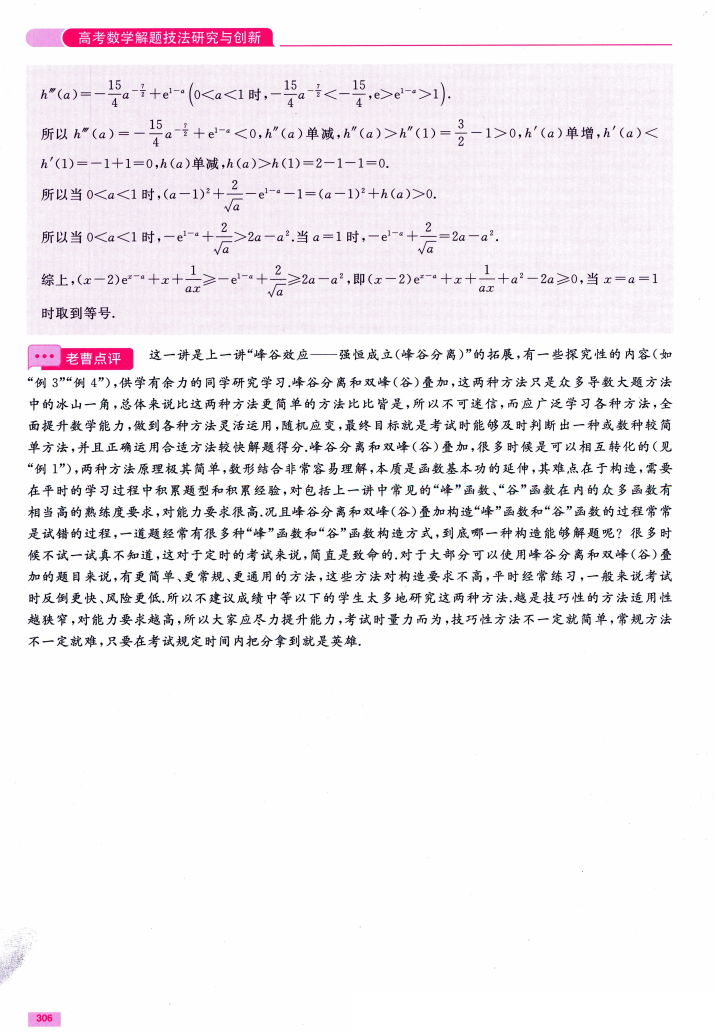 高考数学解题技法研究与创新
h‴(a)=−15/4 a^{−7/2}+e^{1−a}(0<a<1时,−15/4 a^{−7/2}<−15/4,e>e^{1−a}>1).
所以 h‴(a)=−15/4 a^{−7/2}+e^{1−a}<0,h″(a)单减,h″(a)>h″(1)=3/2−1>0,h′(a)单增,h′(a)<
h′(1)=−1+1=0,h(a)单减,h(a)>h(1)=2−1−1=0.
所以当 0<a<1时,(a−1)²+2/√a−e^{1−a}−1=(a−1)²+h(a)>0.
所以当 0<a<1时,−e^{1−a}+2/√a>2a−a².当 a=1时,−e^{1−a}+2/√a=2a−a².
综上,(x−2)e^{x−a}+x+1/ax≥−e^{1−a}+2/√a≥2a−a²,即(x−2)e^{x−a}+x+1/ax+a²−2a≥0,当 x=a=1
时取到等号.
老曹点评 这一讲是上一讲“峰谷效应——强恒成立(峰谷分离)”的拓展,有一些探究性的内容(如
“例 3”“例 4”),供学有余力的同学研究学习.峰谷分离和双峰(谷)叠加,这两种方法只是众多导数大题方法
中的冰山一角,总体来说比这两种方法更简单的方法比比皆是,所以不可迷信,而应广泛学习各种方法,全
面提升数学能力,做到各种方法灵活运用,随机应变,最终目标就是考试时能够及时判断出一种或数种较简
单方法,并且正确运用合适方法较快解题得分.峰谷分离和双峰(谷)叠加,很多时候是可以相互转化的(见
“例 1”),两种方法原理极其简单,数形结合非常容易理解,本质是函数基本功的延伸,其难点在于构造,需要
在平时的学习过程中积累题型和积累经验,对包括上一讲中常见的“峰”函数、“谷”函数在内的众多函数有
相当高的熟练度要求,对能力要求很高.况且峰谷分离和双峰(谷)叠加构造“峰”函数和“谷”函数的过程常常
是试错的过程,一道题经常有很多种“峰”函数和“谷”函数构造方式,到底哪一种构造能够解题呢？很多时
候不试一试真不知道,这对于定时的考试来说,简直是致命的.对于大部分可以使用峰谷分离和双峰(谷)叠
加的题目来说,有更简单、更常规、更通用的方法,这些方法对构造要求不高,平时经常练习,一般来说考试
时反倒更快、风险更低.所以不建议成绩中等以下的学生太多地研究这两种方法.越是技巧性的方法适用性
越狭窄,对能力要求越高,所以大家应尽力提升能力,考试时量力而为,技巧性方法不一定就简单,常规方法
不一定就难,只要在考试规定时间内把分拿到就是英雄.
306